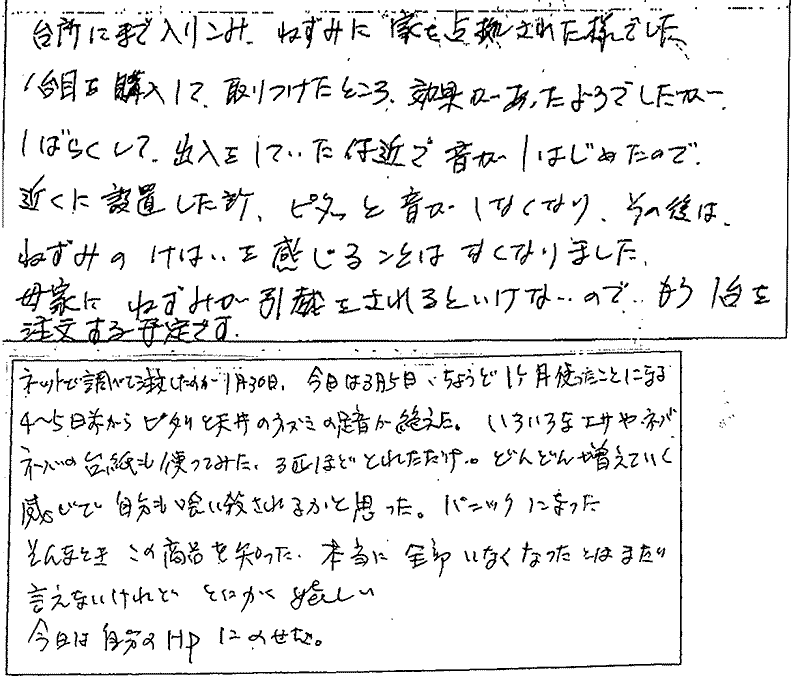 台所にまで入りこみ、ねずみに家を占拠された様でした
1台目を購入して、取りつけたところ、効果があったようでしたが、
しばらくして、出入をしていた付近で音がしはじめたので、
近くに設置した所、ピタッと音がしなくなり、その後は、
ねずみのけはいを感じることはなくなりました。
母家にねずみが引越をされるといけないので、もう1台を
注文する予定です。
ネットで調べて注文したのが1月30日、今日は3月5日、ちょうど1ヶ月使ったことになる
4〜5日前からピタリと天井のネズミの足音が絶えた。いろいろなエサやネバ
ネバの台紙も使ってみた、3匹ほどとれただけ。どんどん増えていく
感じで自分も喰い殺されるかと思った。パニックになった
そんなときこの商品を知った、本当に全部いなくなったとはまだ
言えないけれど とにかく嬉しい
今日は自分のHPにのせた。